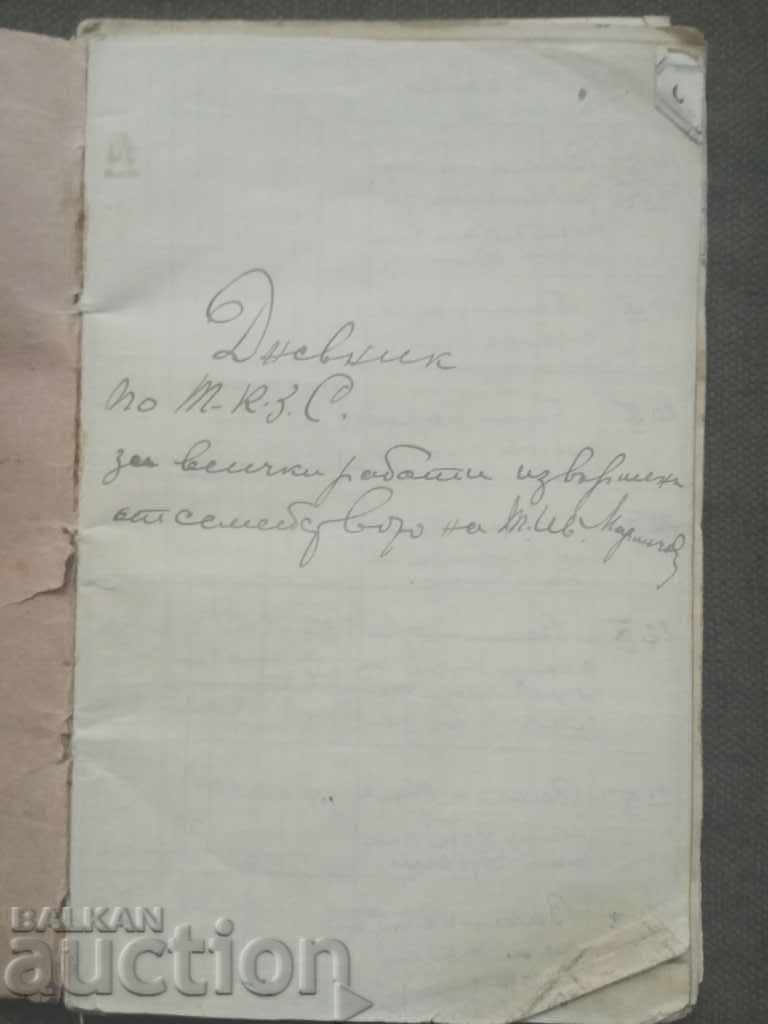 Дневник
по Т.К.З.С.
за всички работи извършени
от семейството на Т. Ив. Маринчев
BALKAN
auction